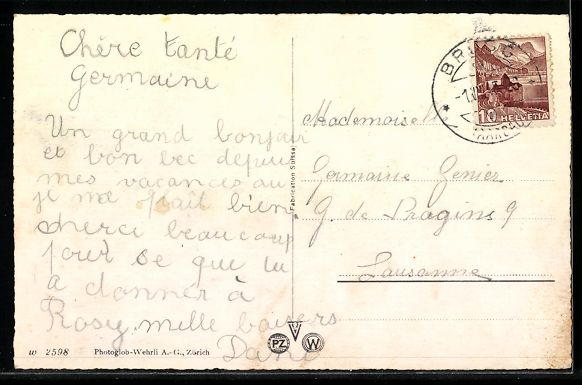 Chère tanté
Germaine
Un grand bonjour
et bon bec depuis
mes vacances au
je me plait bien
cherie beaucoup
pour se que tu
a donner à
Rosy, mille baisers
Mademoiselle
Germaine Genier
G. de Pragins 9
Lausanne
Fabrication Suisse
HELVETIA
10
W 2598 Photoglob-Wehrli A.-G., Zürich
PZ
W